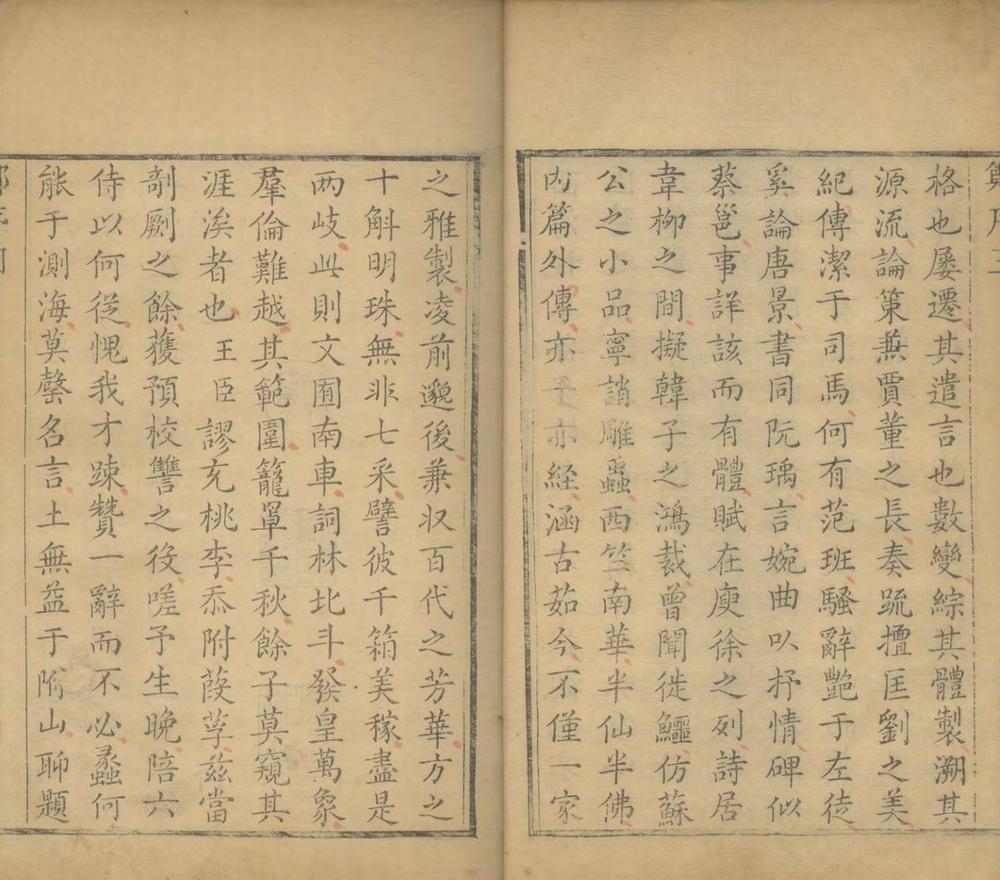 格也屢遷其遣言也數變綜其體製溯其
源流論策兼賈董之長奏疏擅匡劉之美
紀傳潔于司馬何有范班騷辭艷于左徒
奚論唐景書同阮瑀言婉曲以抒情碑似
蔡邕事詳該而有體賦在庾徐之列詩居
韋柳之間擬韓子之鴻裁曾聞徙鱷仿蘇
公之小品寧誚雕蟲西竺南華半仙半佛
內篇外傳亦子亦經涵古茹今不僅一家
之雅製凌前邈後兼収百代之芳華方之
十斛明珠無非七采譬彼千箱美稼盡是
兩岐此則文囿南車詞林北斗發皇萬象
羣倫難越其範圍籠罩千秋餘子莫窺其
涯涘者也王臣謬充桃李忝附葭莩茲當
剞劂之餘獲預校讐之役嗟予生晚陪六
侍以何從愧我才踈贊一辭而不必蠡何
能于測海莫罄名言土無益于隋山聊題